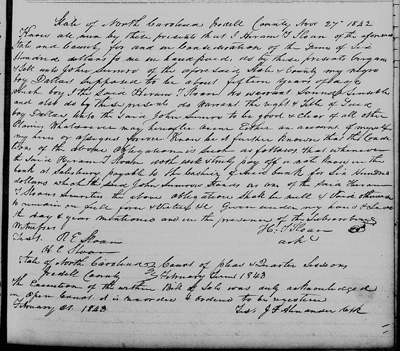 State of North Carolina Iredell County Nov 27th 1842
Know all men by these presents that I Hiram T Sloan of the aforesaid
State and County for and in consideration of the Sum of Six
Hundred dollars to me in hand paid do by these presents bargain
Sell unto John Sumrow of the aforesaid State & County my negro
boy Dallas supposed to be about fifteen years of age
which boy I the Said Hiram T Sloan do warrant Sound & Sensible
and also do by these presents do Warrant the right & title of Said
boy Dallas unto the Said John Sumrow to be good & clear of all other
claims Whatsoever may hereafter accrue Either on account of myself
my heirs or assigns forever Know be it further Known that the Condi
tion of the above Obligation is Such as follows that whereas
the Said Hiram T Sloan doth pay off a note Known in the
bank at Salisbury payable to the Cashier of Said bank for Six Hundred
dollars which the Said John Sumrow Stands as one of the Said Hiram
T Sloans Securities the above obligation Shall be null & Void otherwise
to remain in full force & virtue Given under my hand & Seal
the day & year mentioned and in the presence of the Subscribing
Witnesses
H. T Sloan
Test. R E Sloan
State of North Carolina Court of pleas & Quarter Sessions
Iredell County February Term 1843
The Execution of the within Bill of Sale was duly acknowledged
in Open Court & is recorded & ordered to be registered
February 1843 Test J F Alexander Clk